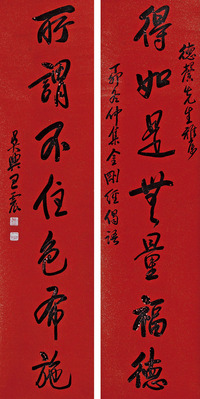 德馨先生雅屬
得如是無量福德
節冬仲集金剛經偈語
所謂不住色布施
吳興王震